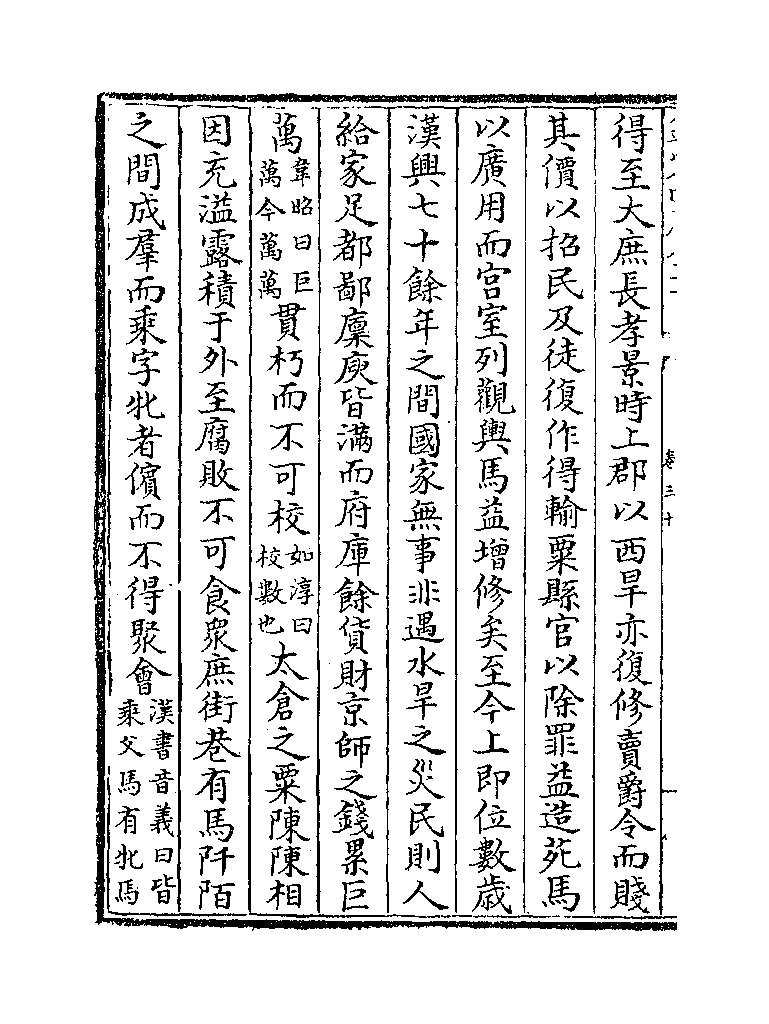 得至大庶長孝景時上郡以西旱亦復修賣爵令而賤
其價以招民及徒復作得輸粟縣官以除罪益造苑馬
以廣用而宫室列觀輿馬益增修矣至今上即位數歳
漢興七十餘年之間國家無事非遇水旱之災民則人
給家足都鄙廪庾皆滿而府庫餘貨財京師之錢累巨
萬韋昭曰巨萬今萬萬貫朽而不可校如淳曰校數也太倉之粟陳陳相
因充溢露積于外至腐敗不可食衆庶街巷有馬阡陌
之間成羣而乘字牝者儐而不得聚會漢書音義曰皆乘父馬有牝馬
卷三十